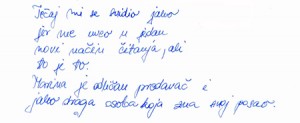 Tečaj mi se svidio jako
jer me uveo u jedan
novi način čitanja, ali
to je to.
Marina je odličan predavač i
jako draga osoba koja zna svoj posao.